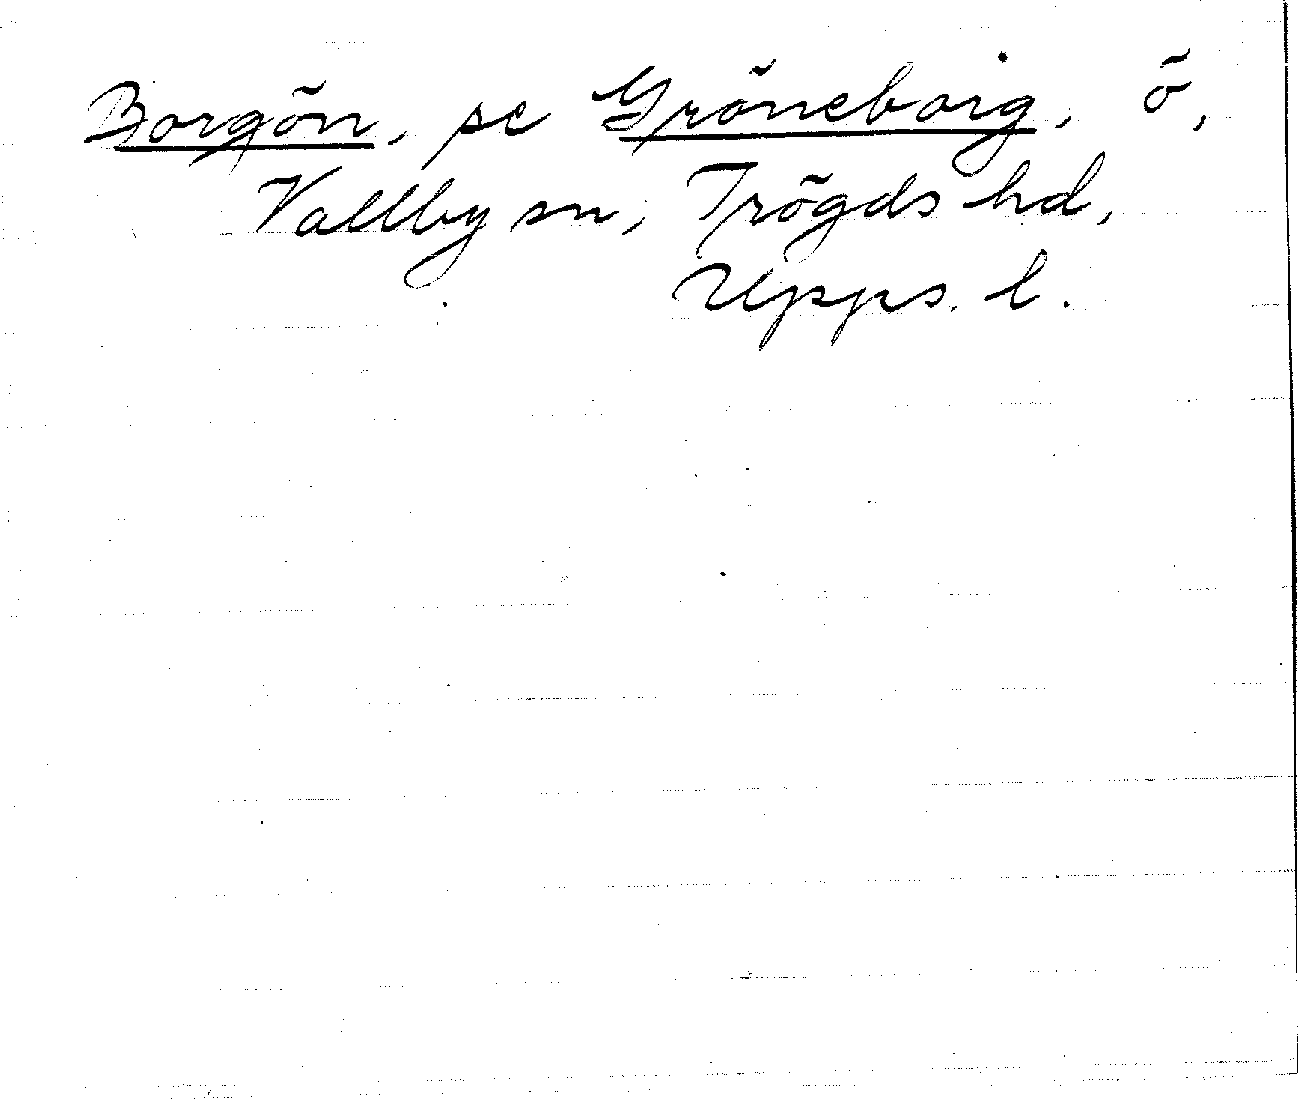 Borgön, se Gröneborg, ö,
Vallby sn, Trögds hd,
Upps. l.